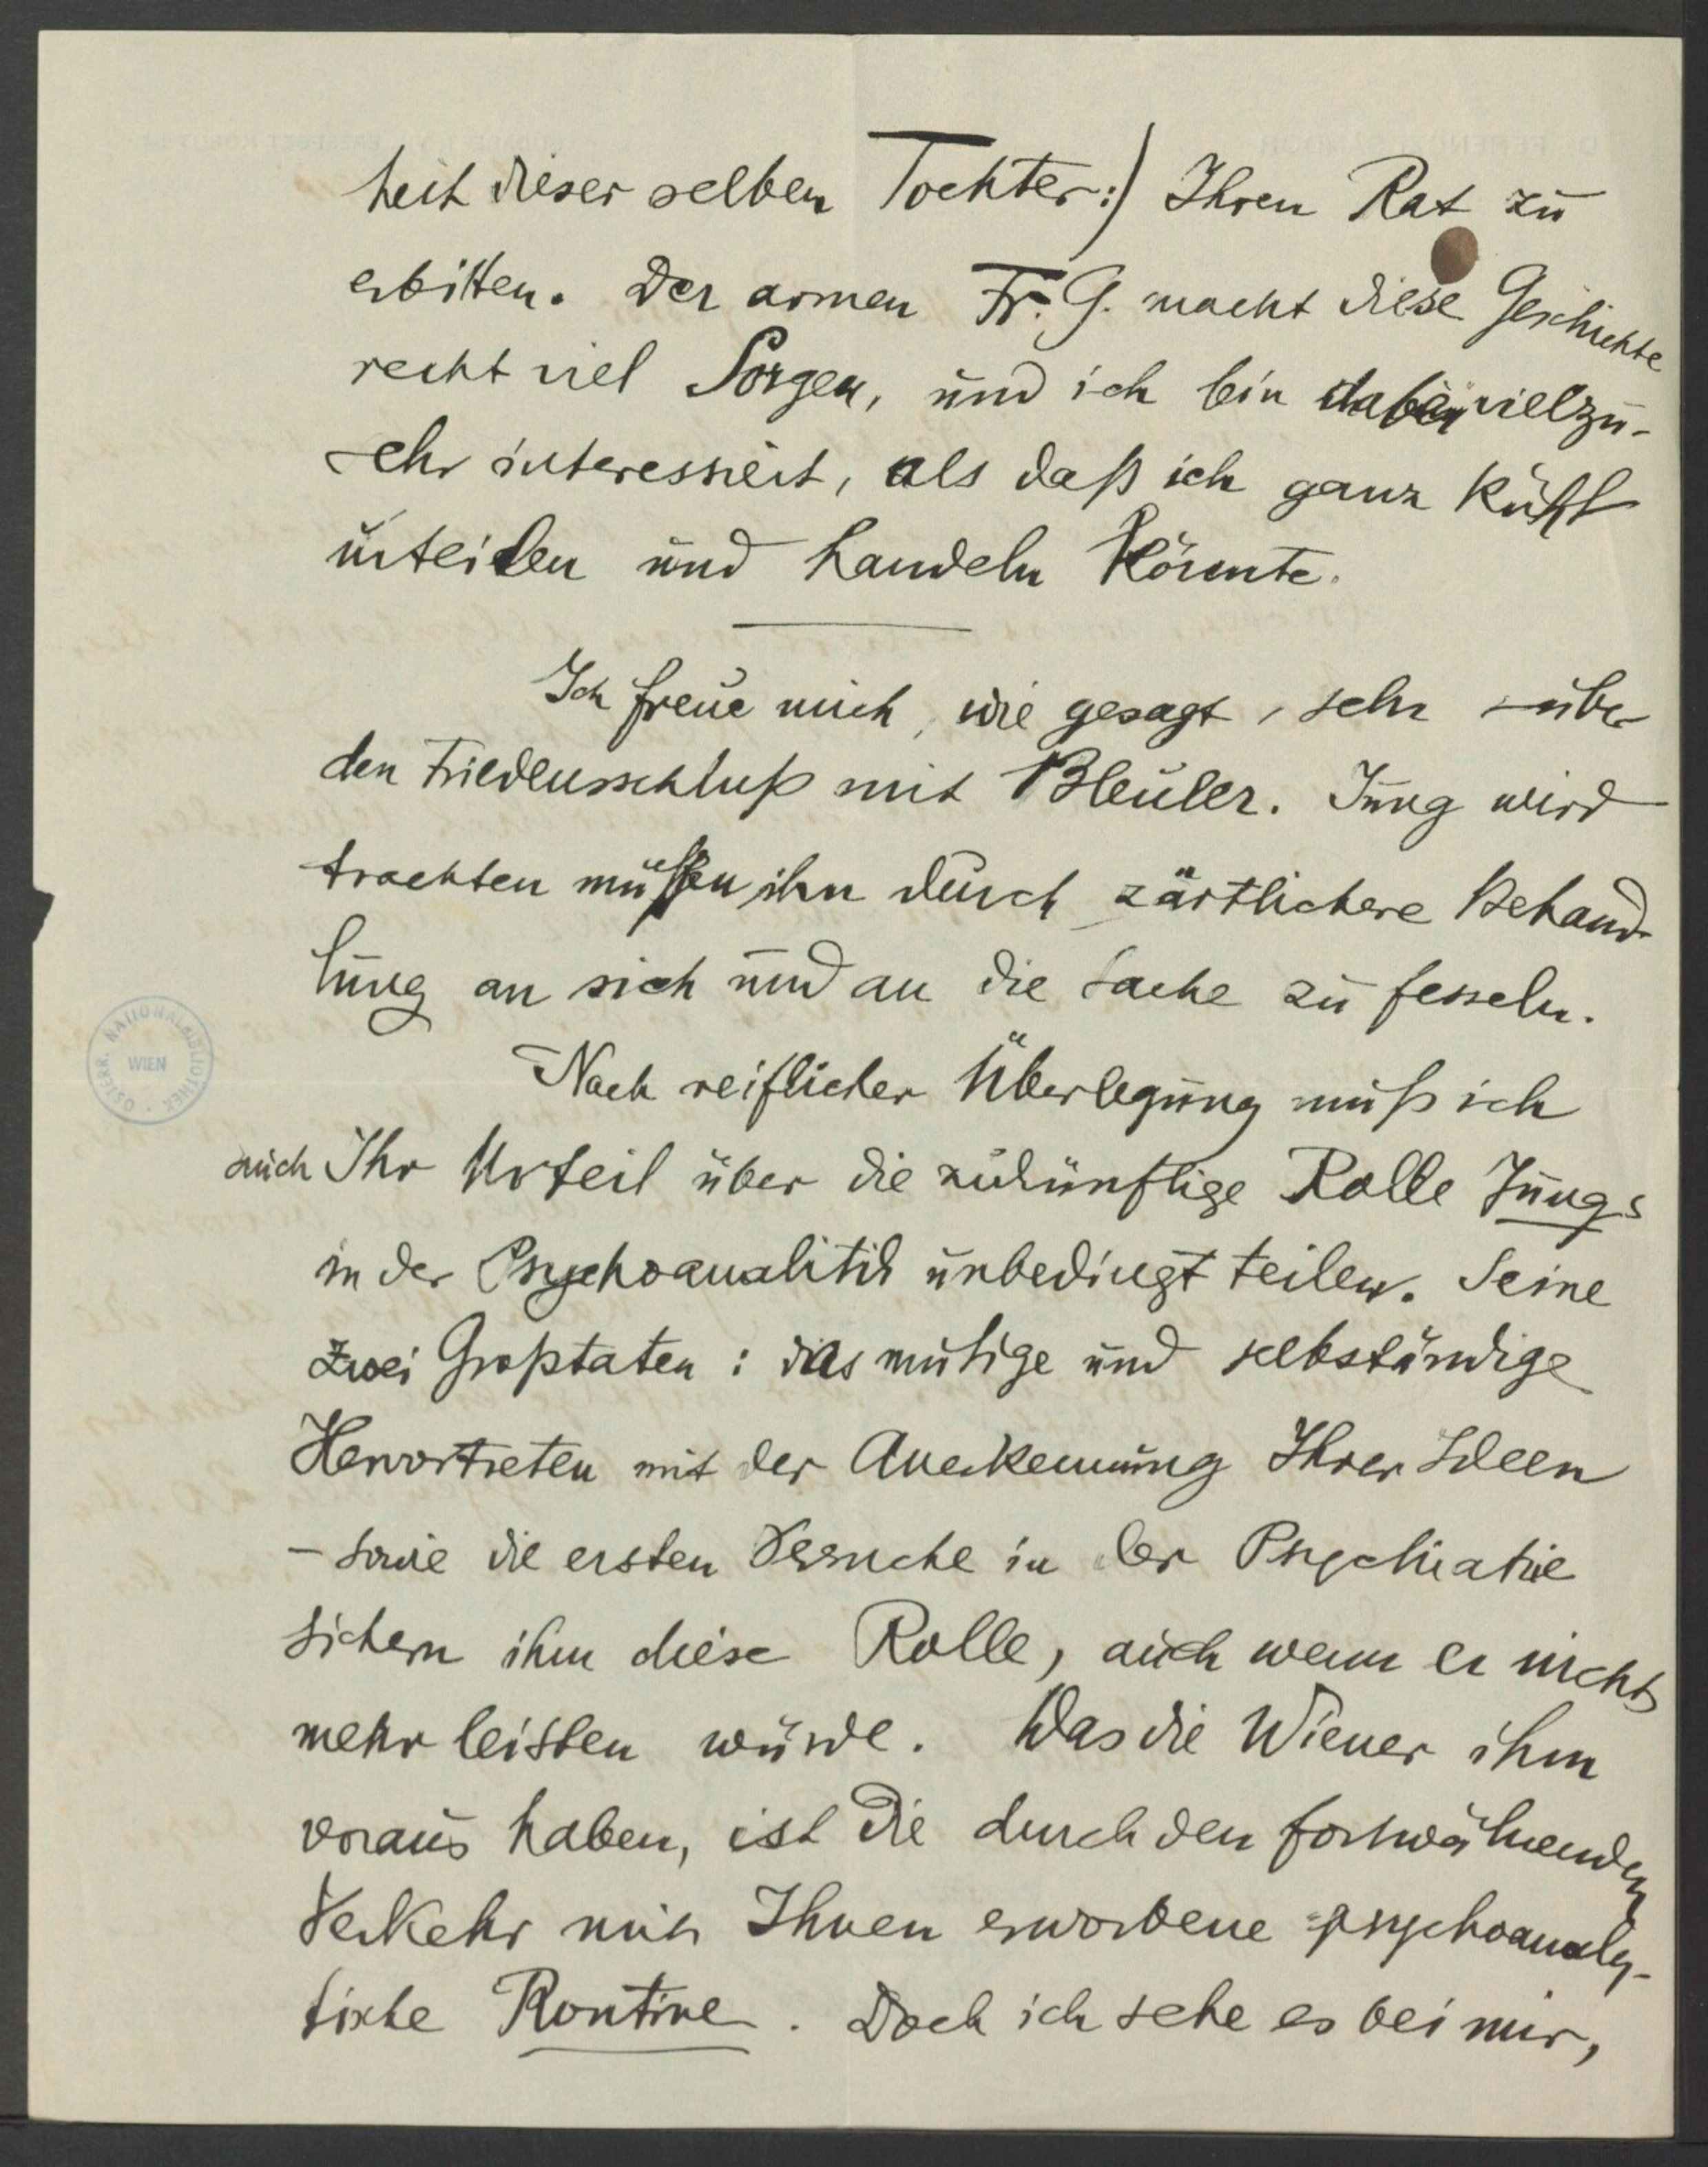 heit dieser selben Tochter:) Ihren Rat zu
erbitten. Der armen Fr. G. macht diese Geschichte
recht viel Sorgen, und ich bin dabei vielzu-
sehr interessiert, als daß ich ganz kühl
urteilen und handeln könnte.
Ich freue mich, wie gesagt, sehr über
den Friedensschluß mit Bleuler. Jung wird
trachten müssen ihn durch zärtlichere Behand-
lung an sich und an die Sache zu fesseln.
Nach reiflicher Überlegung muß ich
auch Ihr Urteil über die zukünftige Rolle Jungs
in der Psychoanalitik unbedingt teilen. Seine
zwei Großtaten: das mutige und selbständige
Hervortreten mit der Anerkennung Ihrer Ideen
– sowie die ersten Versuche in der Psychiatrie
sichern ihm diese Rolle, auch wenn er nichts
mehr leisten würde. Was die Wiener ihm
voraus haben, ist die durch den fortwährenden
Verkehr mit Ihnen erworbene psychoanaly-
tische Routine. Doch ich sehe es bei mir,
ÖSTERR. NATIONALBIBLIOTHEK
WIEN